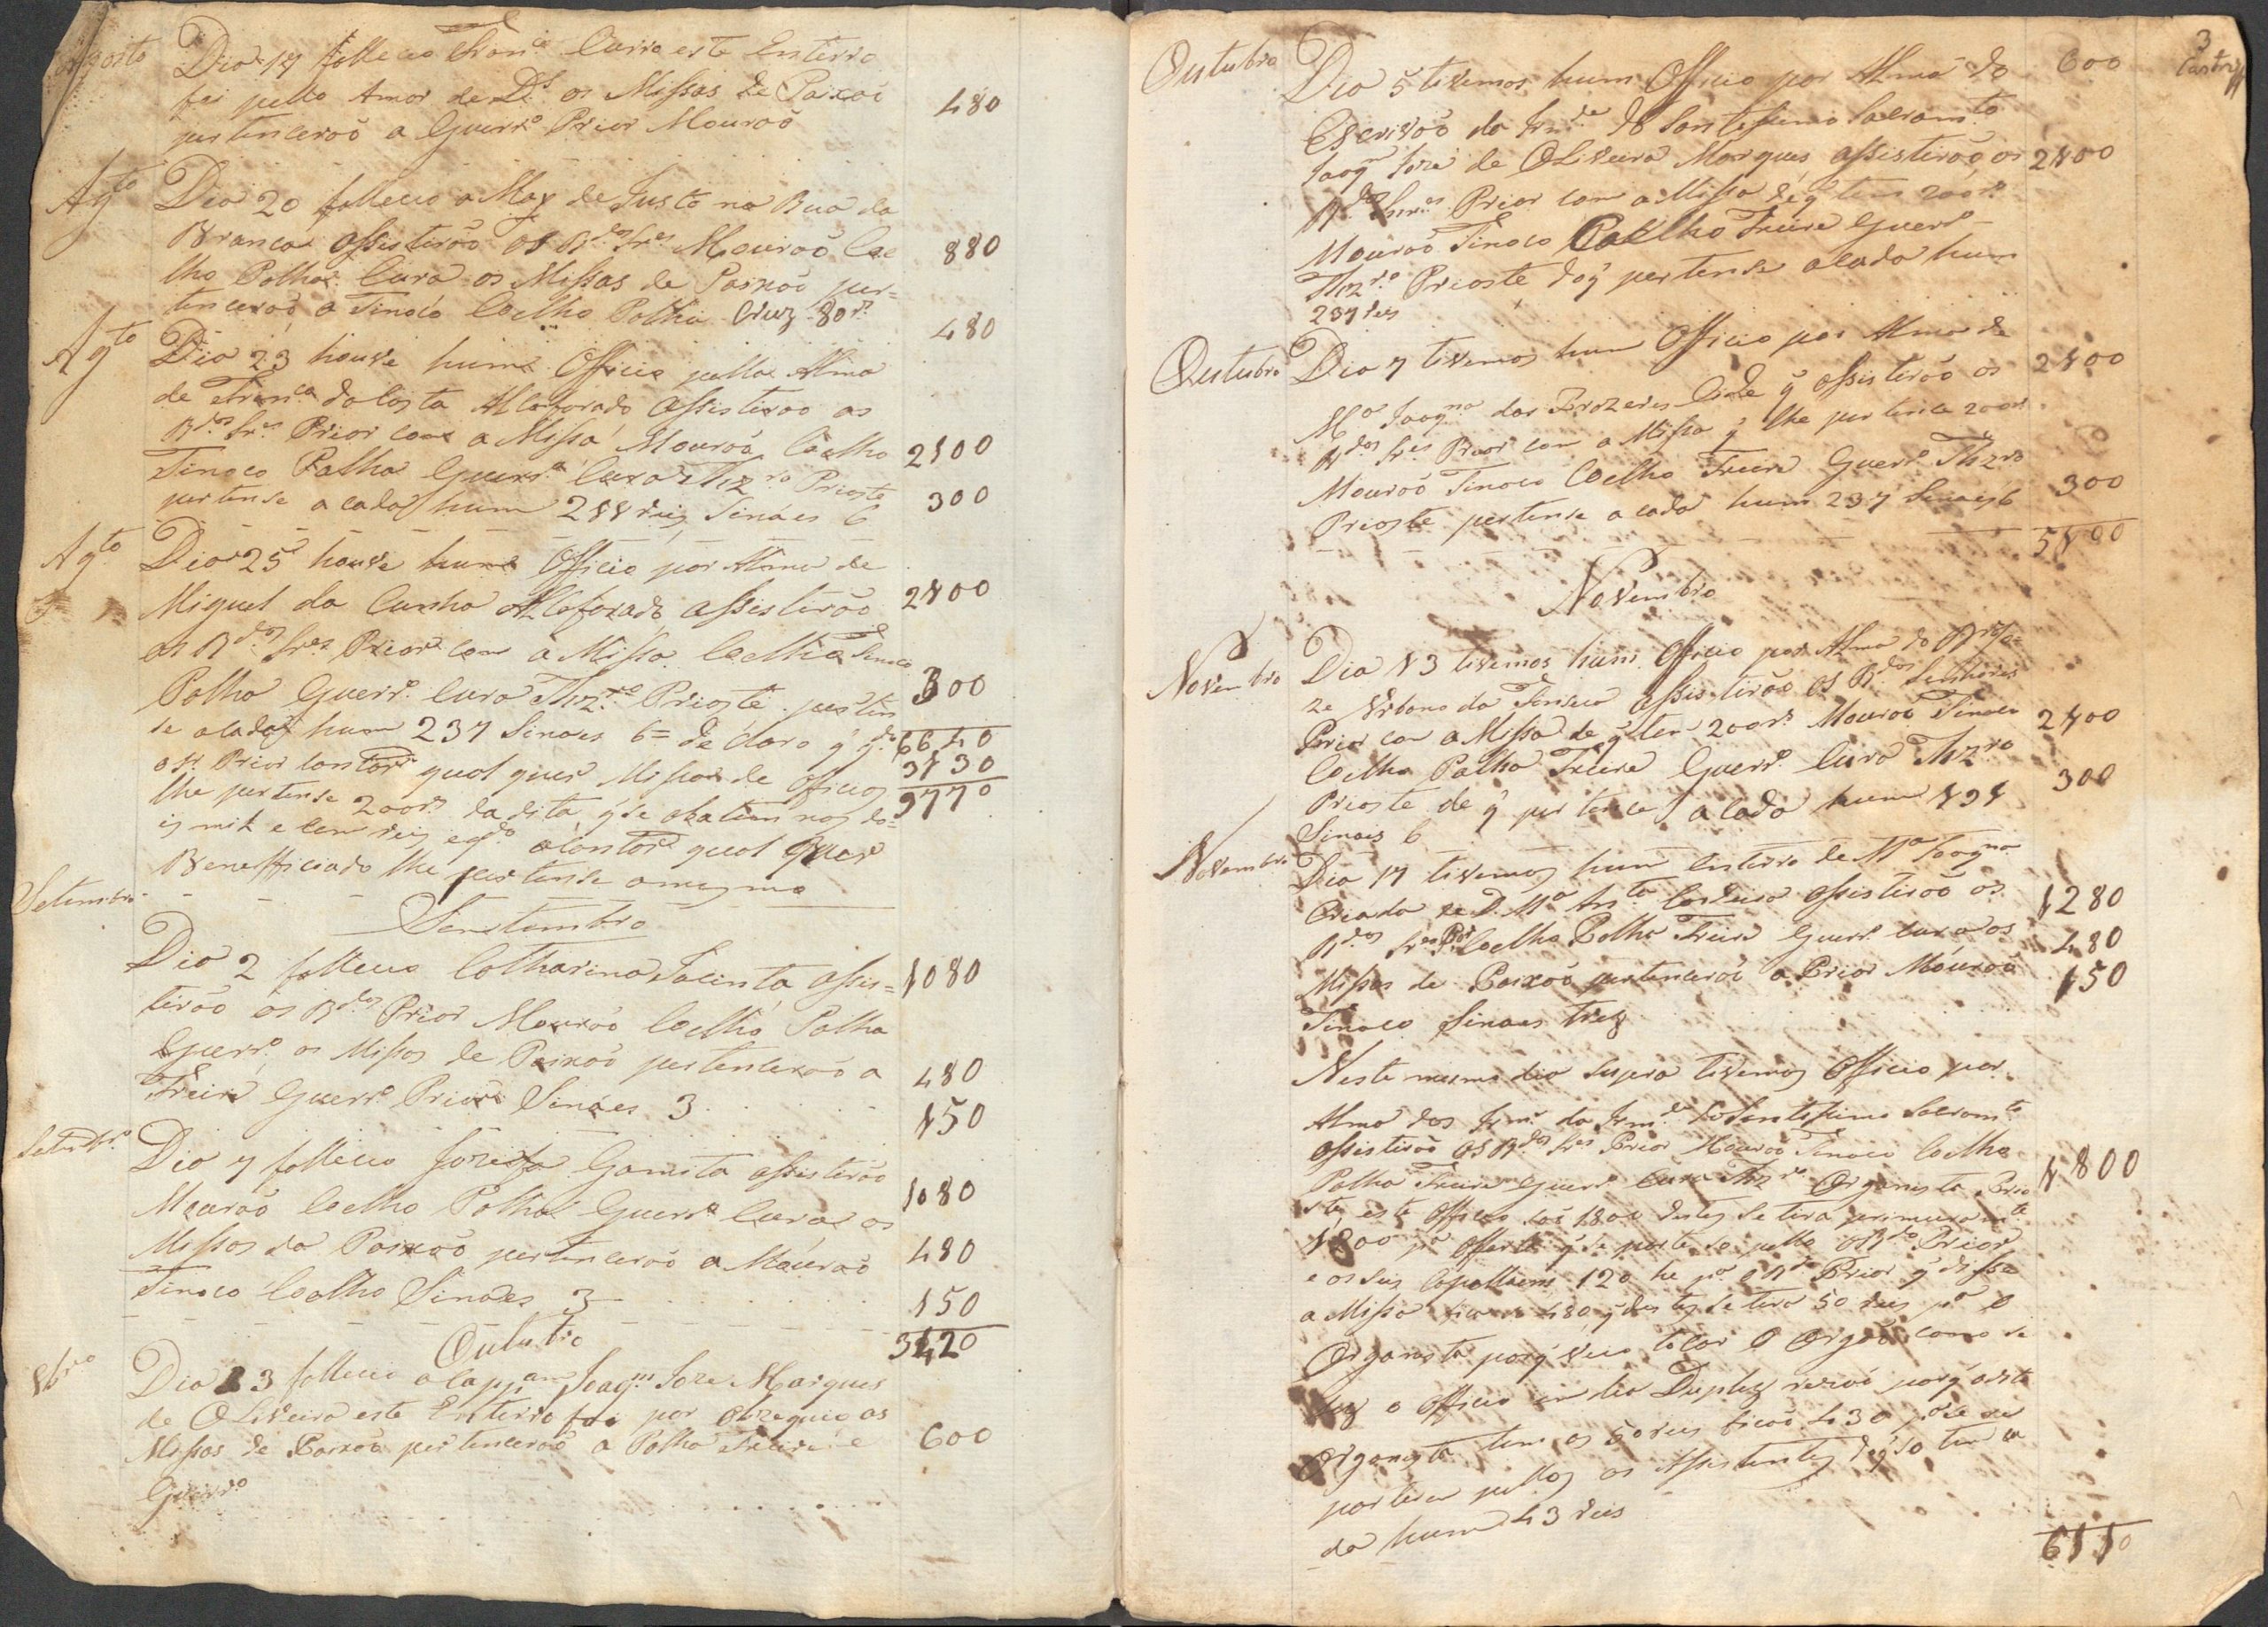 Agosto Dia 14 falleceo Fran.ca Curra este Enterro
foi pello Amor de D.s as Missas de Paixaõ 480
pertenceraõ a Guerr.o Prior Mouraõ
Ag.to Dia 20 falleceo a May de Justo na Rua da
Branca assistiraõ os R.dos Sres Mouraõ Coe 880
lho Palha Cura as Missas de Paixaõ per=
tenceraõ a Tinoco Coelho Palha Cruz 80 rs 480
Ag.to Dia 23 houve hum Officio pella Alma
de Fran.ca da Costa Alcoforado assistiraõ os
R.dos Sres Prior com a Missa Mouraõ Coelho 2100
Tinoco Palha Guerr.o Cura Thz.ro Prioste
pertense a cada hum 211 reis Sinaes 6 300
Ag.to Dia 25 houve hum Officio por Alma de
Miguel da Cunha Alcoforado assistiraõ 2100
os R.dos Sres Prior com a Missa Coelho Tinoco
Palha Guerr.o Cura Thz.ro Prioste perten 300
se a cada hum 237 Sinaes 6 = declaro q̃ q.do 6640
o Sr Prior cantar qual quer Missa de Officios 3130
lhe pertense 200 rs da dita q̃ se abatem nos do= 9770
is mil e cem reis e q.do a cantar qual quer
Benefficiado lhe pertense o mesmo
Setembro
Senetembro
Dia 2 falleceo Catharina Jacinta assis= 1080
tiraõ os R.dos Prior Mouraõ Coelho Palha
Guerr.o as Missas de Paixaõ pertenceraõ a 480
Freire Guerr.o Prior Sinaes 3 150
Setembr.o Dia 7 falleceo Jozefa Gamita assistiraõ
Mouraõ Coelho Palha Guerr.o Cura as 1080
Missas da Paixaõ pertenceraõ a Mouraõ 480
Tinoco Coelho Sinaes 3 150
Outubro 3420
8br.o Dia 3 falleceo o Cap.am Joaq.m Joze Marques
de OLiveira este Enterro foi por obzequio as
Missas de Paixaõ pertenceraõ a Palha Freire e 600
Guerr.o
3
Outubro Dia 5 tivemos hum Officio por Alma do 600
Escrivaõ da Irm.de do Santissimo Sacram.to
Joaq.m Joze de OLiveira Marques assistiraõ os 2100
R.dos Snres Prior com a Missa de q̃ tem 200 rs
Mouraõ Tinoco Coelho Freire Guerr.o
Thz.ro Prioste do q̃ pertense a cada hum
237 reis
Outubro Dia 7 tivemos hum Officio por Alma de
M.a Joaq.na dos Prazeres q̃ assistiraõ os 2100
R.dos Sres Prior com a Missa q̃ lhe pertence 200 rs
Mouraõ Tinoco Coelho Freire Guerr.o Thz.ro
Prioste pertense a cada hum 237 Sinaes 6 300
5100
Novembro
Novembro Dia 13 tivemos hum Officio por Alma do
Urbano da Fonseca assistiraõ os R.dos Senhores
Prior com a Missa de q̃ tem 200 rs Mouraõ Tinoco 2100
Coelho Palha Freire Guerr.o Cura Thz.ro
Prioste de q̃ pertence a cada hum 191 300
Sinais 6
Novembro Dia 17 tivemos hum enterro de M.a Joaq.na
Criada de D. M.a Ant.a Cordeiro assistiraõ os 1280
R.dos Sres Pr.or Coelho Palha Freire Guerr.o Cura as 480
Missas de Paixaõ pertenceraõ a Prior Mouraõ 150
Tinoco Sinaes trez
Neste mesmo dia supra tivemos Officio por
Alma dos Irm.s da Irm.de do Santissimo Sacram.to
assistiraõ os R.dos Sres Prior Mouraõ Tinoco Coelho
Palha Freire Guerr.o Cura Thz.ro Organista Prio 1800
ste este Officio saõ 1800 destes se tira primeiram.te
1200 p.a Offerta q̃ se parte so pello R.do Prior
e os seis Capellaens 120 he p.a o R.do Prior q̃ disse
a Missa ficaõ 480 q̃ destes se tira 50 reis p.a o
Organista porq̃ veio tocar o Orgaõ como se
fez o Officio em Duplez porq̃ o dito
Organista tem os 50 reis ficaõ 430 p.a se re
partirem pellos os Assistentes de q̃ so tem ca
da hum 43 reis
6110